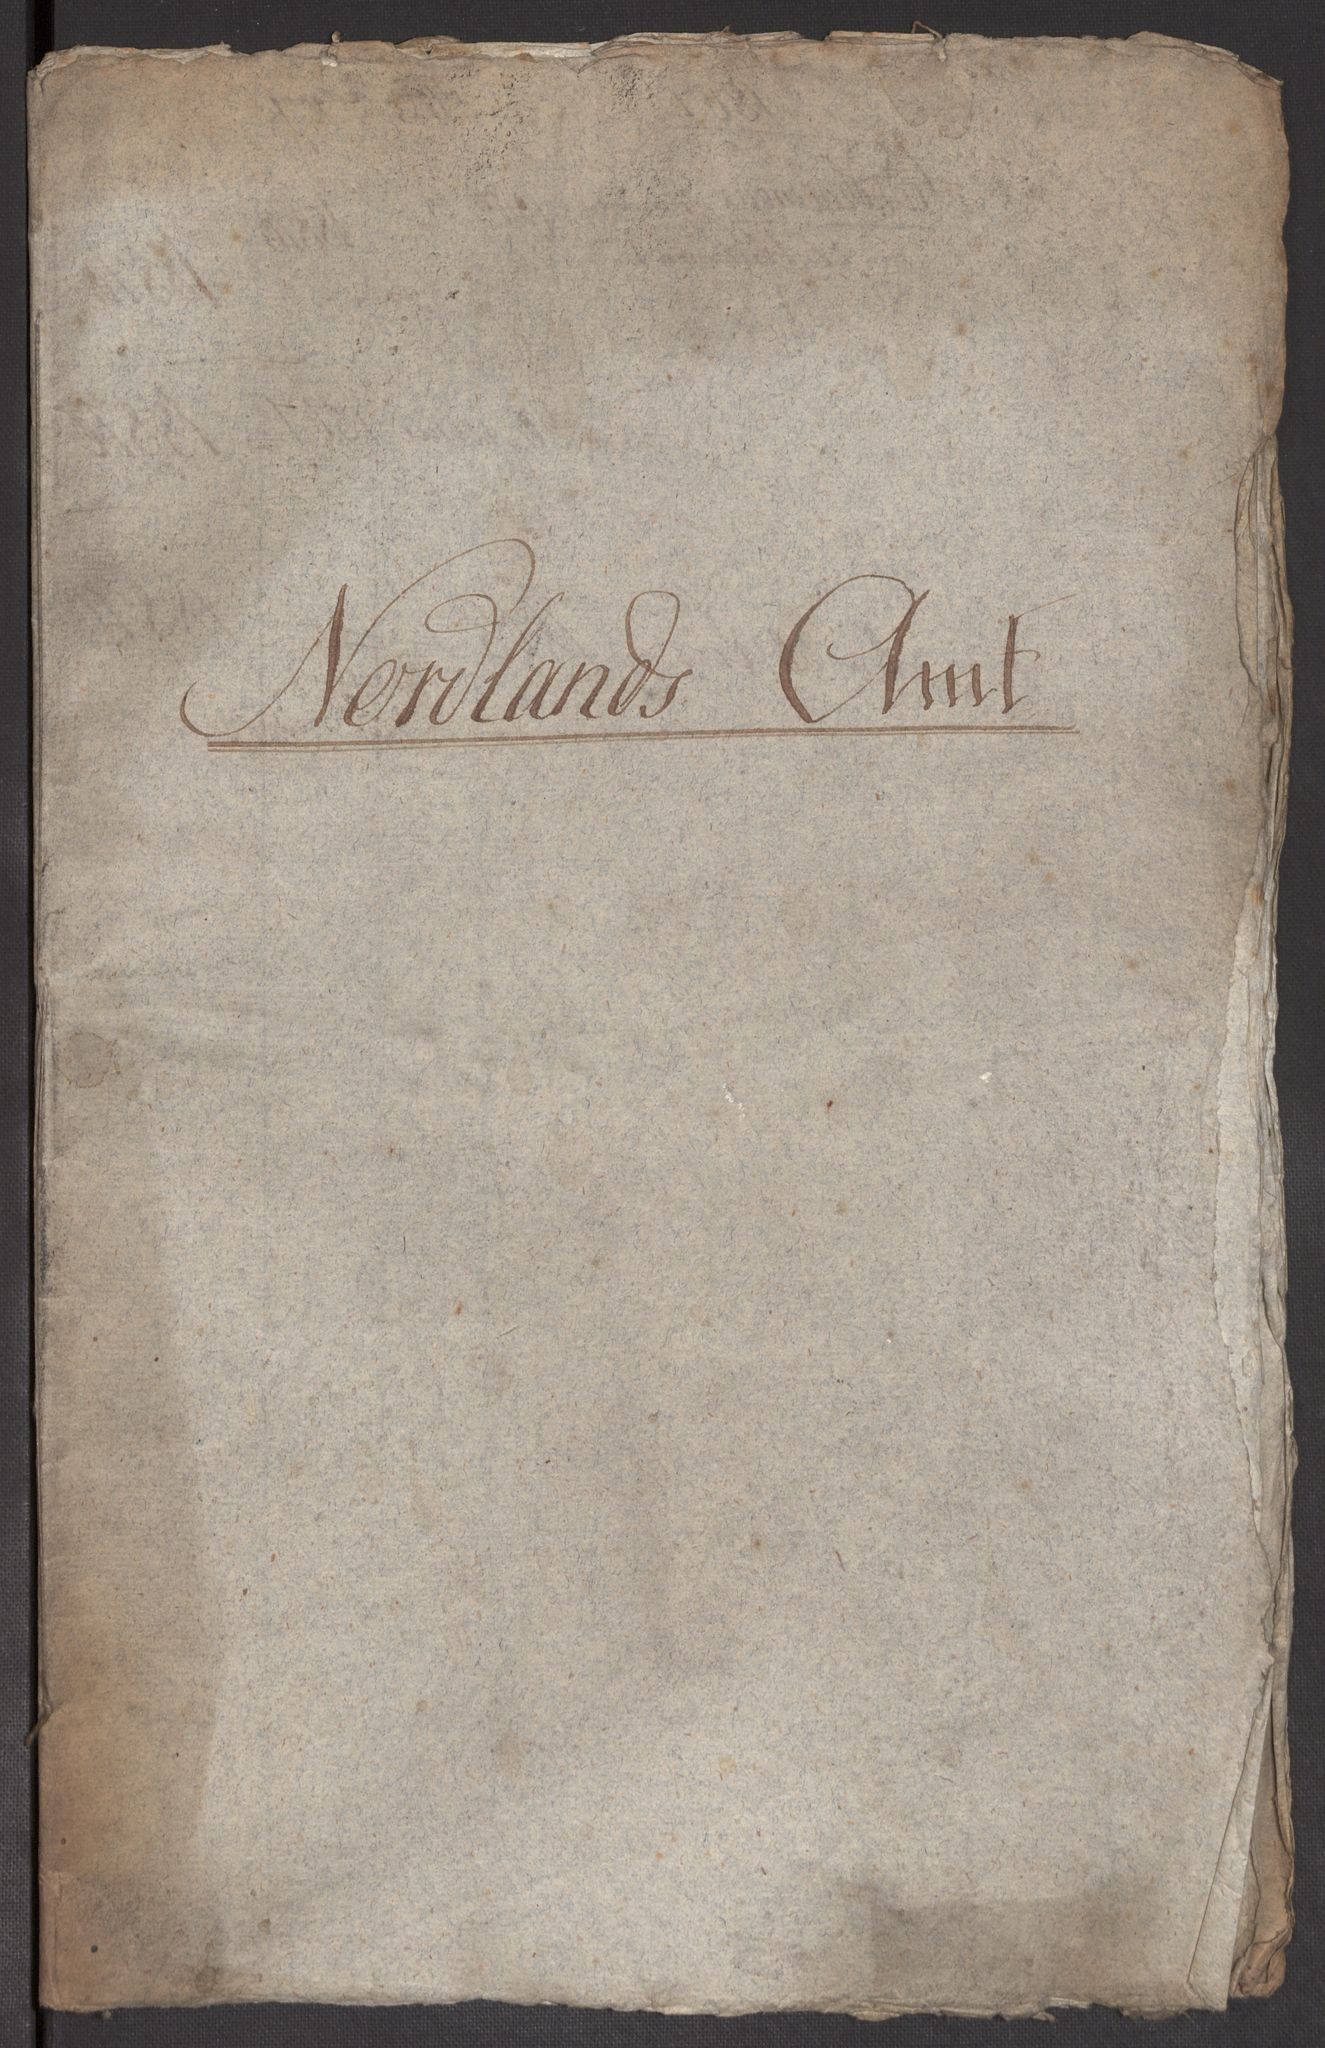 Nordlands Amt